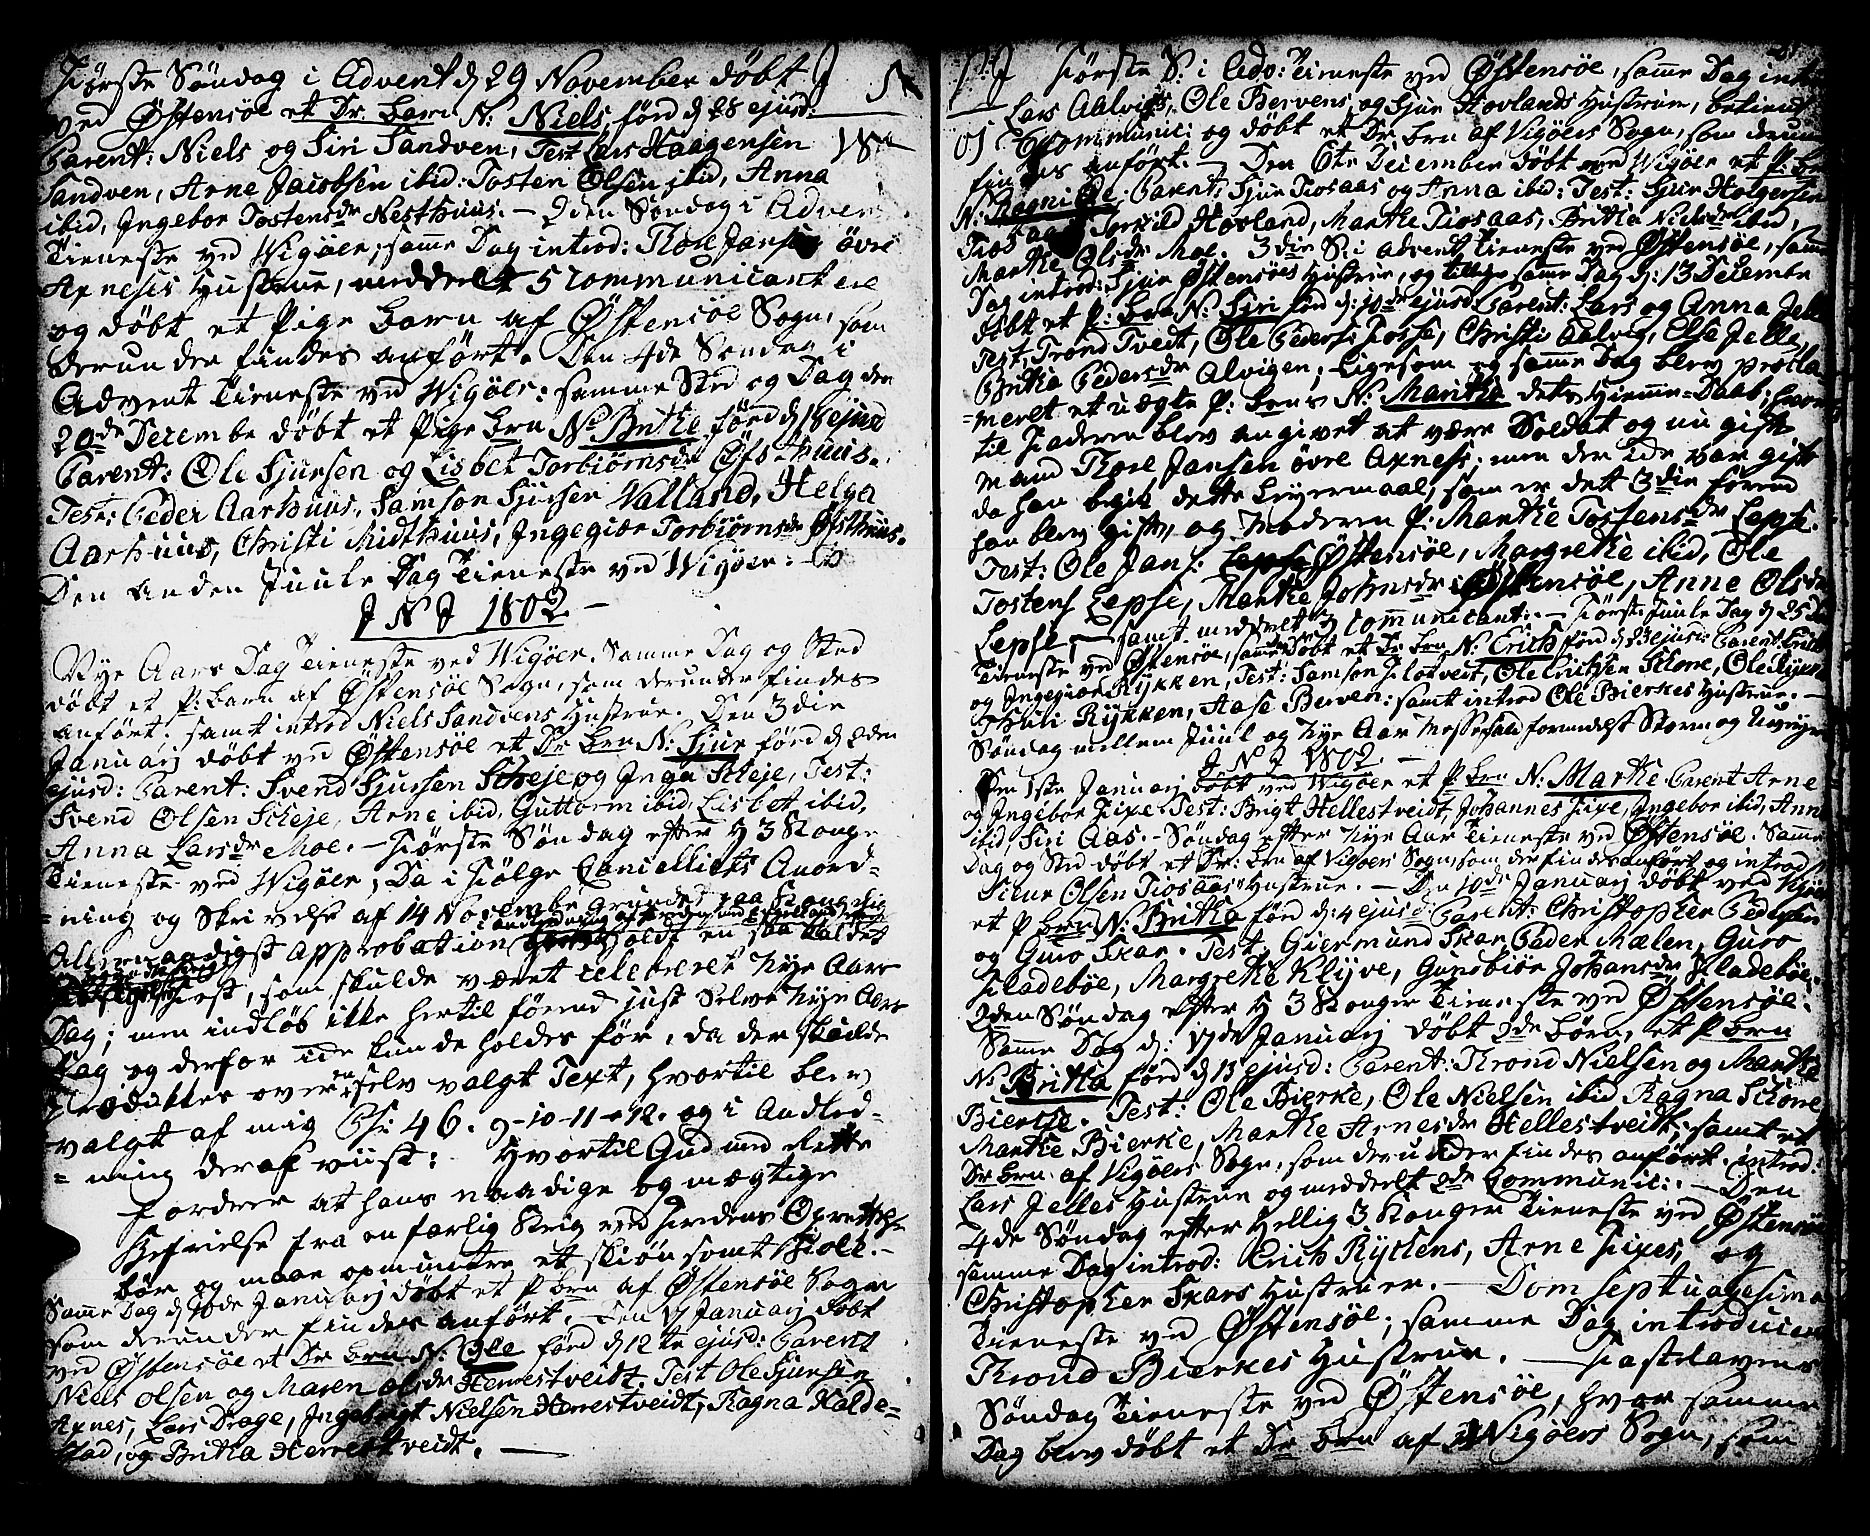 Første Søndag i Advent d 29 November døbt
ved Østensöe et Dr. barn N: Niels förd d 28 ejusd:
Parent: Niels og Siri Sandven, Test Lars Haagensen
Sandven, Arne Jacobsen ibid: Tosten Olsen ibid, Anna
ibid, Ingebor Tostensdr Nesthuus. — 2den Søndag i Advent
Tieneste ved Wigöer, samme Dag introd: Thore Jansen övre
Axneses Hustrue, meddeelt 5 Communicantere
og døbt et Pige barn af Östensöe Sogn, som
derunder findes anført. Den 4de Søndag i
Advent Tieneste ved Wigöer: samme Sted og Dag den
20de Decembe døbt et Pige brn N: Britke förd d 18 ejusd
Parent: Ole Sjursen og Lisbet Torbiørnsdr Öfsthuus.
Test: Peder Aarhuus, Samson Sjursen Valland, Helga
Aarhuus, Christi Midthuus, Ingegier Torbiørnsdr Öfsthuus.
Den anden Juule Dag Tieneste ved Wigöer: —
J N J 1802 —
Nye Aars Dag Tieneste ved Wigöer. Samme Dag og Sted
døbt et P: barn af Östensöe Sogn, som derunder findes
anført. samt introd Niels Sandvens Hustrue. Den 3die
Januarij døbt ved Östensöe et Dr brn N: Sjur förd d 2den
ejusd: Parent: Svend Sjursen Scheje og Inga Scheje, Test:
Svend Olsen Scheje, Arne ibid, Guttorm ibid, Lisbet ibid,
Anna Larsdr Moe. — Første Søndag efter H 3 Konge
Tieneste ved Wigöer, Da i Følge Cancelliets Anord-
-ning og Skrivelse af 14 Novembe grundet paa Kongelig
Allernaadigst approbation holdt en saa kaldet
Fest, som skulde været celebreret Nye Aars
Dag; men indløb ikke hertil förend just Selve Nye Aars
Dag og derfor icke kunde holdes för, da der skulde
prædikes over en selv valgt Text, hvortil blev
valgt af mig Ps: 46. 9-10-11-12. og i Anled-
-ning deraf viist: Hvortil Gud med Rette
fordrer at hans naadige og mægtige
Befrielse fra en farlig Krig ved Fredens Oprettelse
bør og maae opmuntre et skiönsomt Folk. —
Samme Dag d 10de Januarij døbt et P brn af Östensöe Sogn
som derunder findes anført. Den 17 Januarij døbt
ved Östensöe et Dr brn N: Ole förd d 12te ejusd: Parent
Niels Olsen og Maren Olsdr Herrestveidt. Test Ole Sjursen
Axnes, Lars Drage, Ingebrigt Nielsen Herrestveidt, Ragna Kalde-
stad, og Britha Herrestveidt. —
Første S: i Adv: Tieneste ved Östensöe, samme Dag introd
Lars Aalvigs, Ole Bervens og Sjur Hovlands Hustruer, betient
Communic: og døbt et Dr brn af Vigöers Sogn, som derunder
findes anført. — Den 6te December døbt ved Wigöer et P. brn
N. Ragni Parent, Sjur Tiosaas og Anna ibid: Test: Sjur Holgersen
Tiosaas, Torkild Hovland, Marthe Tiosaas, Britha Nielsdr ibid,
Marthe Olsdr Moe. 3die S: i Advent Tieneste ved Östensöe, samme
Dag introd: Sjur Östensöes Hustrue, og tillige samme Dag d: 13 Decembe
döbt et P: brn N: Siri förd d: 10de ejusd Parent: Lars og Anna Jelle
Test, Trond Tvedt, Ole Peders: Fosse, Christi Aalvig, Else Jelle,
Britha Pedersdr Alvigen, Ligesom og samme Dag blev procla-
-meret et uægte P: brns N: Martha dets Hiemme-Daab; hvor
til Faderen blev angivet at være Soldat og nu gift
mand Thore Jansen övre Axness; men der icke var gift
da han begik dette Leyermaal, som er det 3die förend
han blev gift, og Moderen P: Marthe Tostensdr Lepse.
Test: Ole Jans: Östensöe, Margrethe ibid, Ole
Tostens Lepse, Marthe Johnsdr Östensöe, Anne Olsdr
Lepse, — samt meddeelt communicant: — Første Juule Dag d 25de
Tieneste ved Östensöe, samt døbt et Dr brn N: Erich förd d 23 ejusd: Parent Erich
og Ingegier Rykken, Test: Samson Flotveit, Ole Erichsen Schore, Ole Rykken
Rykken, Aase Berven: samt introd Ole Bierkes Hustrue. —
Søndag mellem Juul og Nye Aar Messefald formedelst Storm og Uveyr
J N J 1802 —
Den 1ste Januarij døbt ved Wigöer et P brn N: Marthe Parent Arne
og Ingebor Fixe. Test: Brigt Hellestveidt, Johannes Fixe, Ingebor ibid, Anna
ibid, Siri Aas. — Søndag efter Nye Aar Tieneste ved Östensöe. Samme
Dag og Sted døbt et Dr: brn af Vigöers Sogn, som der findes anført og introd
Sieur Olsen Tiosaas Hustrue. — Den 10de Januarij døbt ved Wigöer
et P brn N: Britha förd d: 4 ejusd: Parent: Christopher Pedersen
og Guro Skar. Test: Giermund Skar, Peder Mælen, Guro
Fladebøe, Margrethe Klyve, Gunobiör Johansdr Fladebøe.
2den Søndag efter H 3 Konger Tieneste ved Östensöe.
Samme Dag d: 17de Januarij døbt 2de børn, et P brn
N: Britha förd d 13 ejusd: Parent: Trond Nielsen og Marthe
Bierke. Test: Ole Bierke, Ole Nielsen ibid Ragna Schore
Marthe Bierke, Marthe Arnesdr Hellestveidt; samt et
Dr brn af Vigöers Sogn, som derunder findes anført. introd:
Lars Jelles Hustrue og meddeelt 2de Communic: — Den
4de Søndag efter Hellig 3 Konger Tieneste ved Östensöe
samme Dag introd: Erich Rykkens, Arne Fixes, og
Christopher Skars Hustruer. — Dom Septuagesima
Tieneste ved Östensöe; samme Dag introducert
Thrond Bierkes Hustrue. — Fastelavens
Søndag Tieneste ved Östensöe, hvor samme
Dag blev døbt et Dr brn af Wigöers Sogn, som